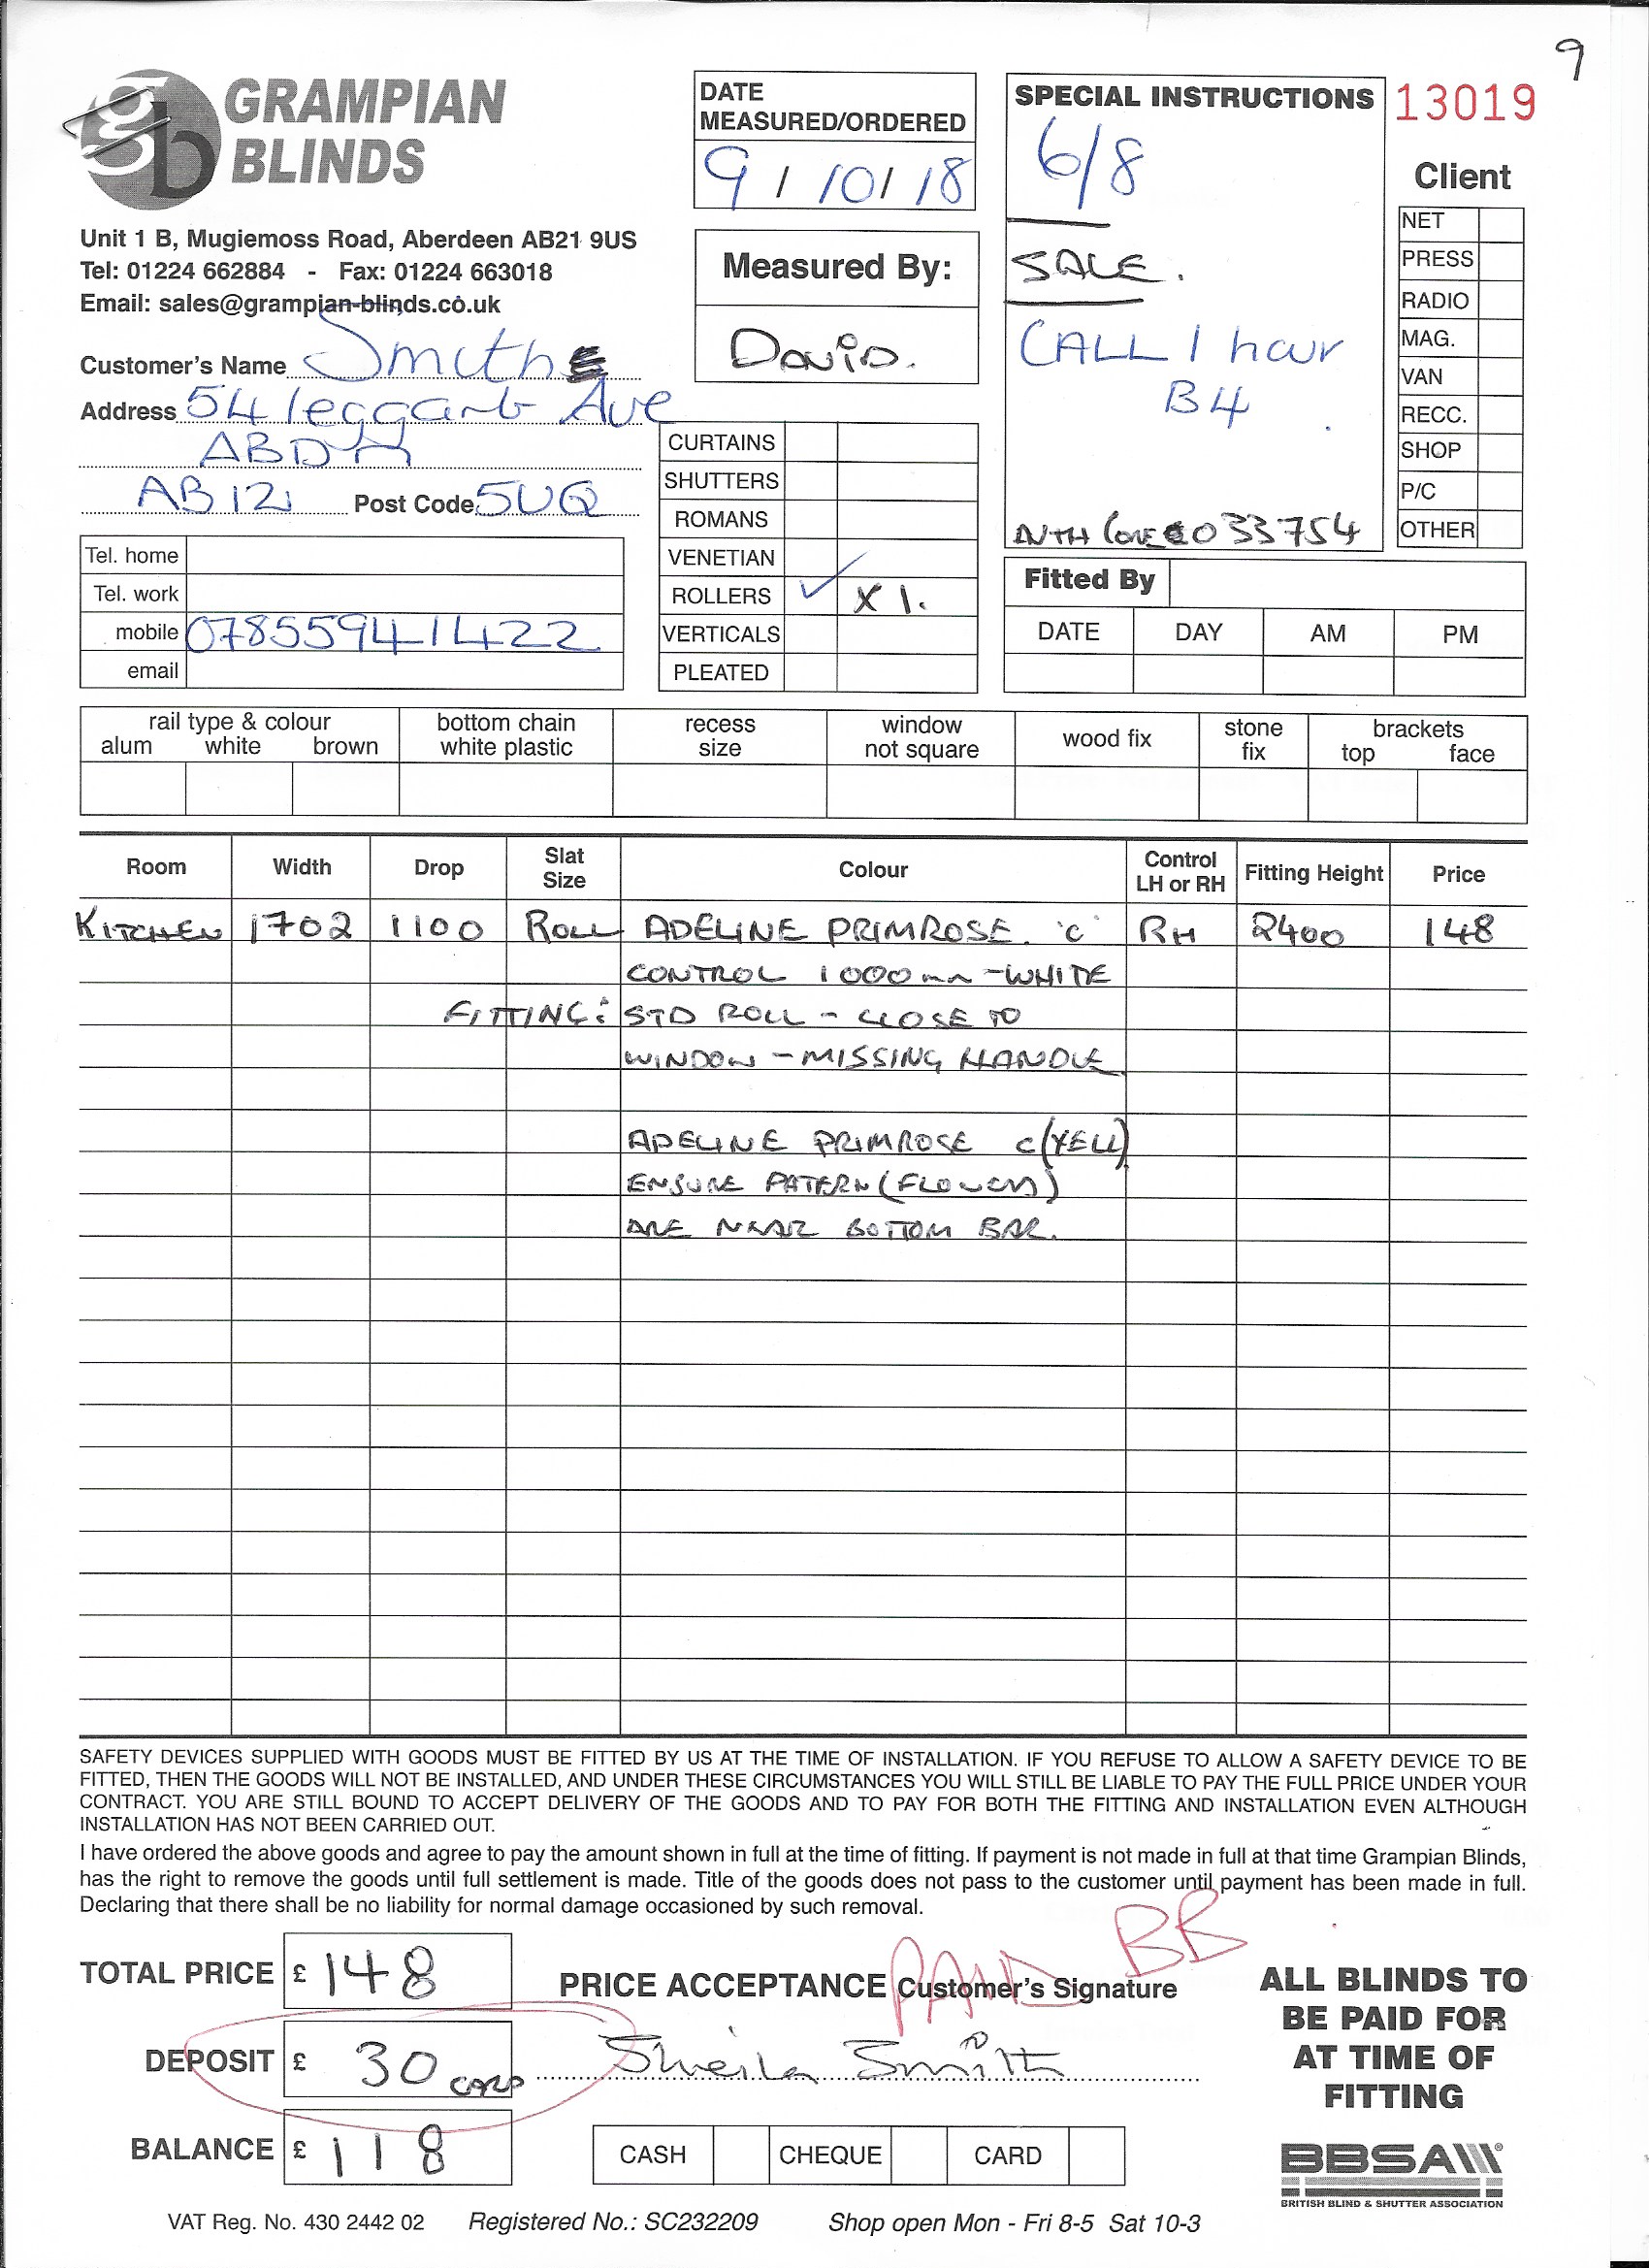 9
GRAMPIAN
BLINDS
Unit 1 B, Mugiemoss Road, Aberdeen AB21 9US
Tel: 01224 662884 - Fax: 01224 663018
Email: sales@grampian-blinds.co.uk
Customer's Name Smith
Address 54 leggart Ave
ABDN
AB12 Post Code 5UQ
Tel. home
Tel. work
mobile 07855941422
email
DATE
MEASURED/ORDERED
9 / 10 / 18
Measured By:
David.
SPECIAL INSTRUCTIONS
6/8
SALE.
CALL 1 hour
B4
AUTH CODE 033754
13019
Client
NET
PRESS
RADIO
MAG.
VAN
RECC.
SHOP
P/C
OTHER
CURTAINS
SHUTTERS
ROMANS
VENETIAN
ROLLERS ✓ X 1.
VERTICALS
PLEATED
Fitted By
DATE DAY AM PM
rail type & colour
alum white brown
bottom chain
white plastic
recess
size
window
not square
wood fix
stone
fix
brackets
top face
Room Width Drop Slat Size Colour Control LH or RH Fitting Height Price
KITCHEN 1702 1100 ROLL ADELINE PRIMROSE. 'C' RH 2400 148
CONTROL 1000mm - WHITE
FITTING: STD ROLL - CLOSE TO
WINDOW - MISSING HANDLE
ADELINE PRIMROSE C (YELL)
ENSURE PATERN (FLOWERS)
ARE NEAR BOTTOM BAR.
SAFETY DEVICES SUPPLIED WITH GOODS MUST BE FITTED BY US AT THE TIME OF INSTALLATION. IF YOU REFUSE TO ALLOW A SAFETY DEVICE TO BE
FITTED, THEN THE GOODS WILL NOT BE INSTALLED, AND UNDER THESE CIRCUMSTANCES YOU WILL STILL BE LIABLE TO PAY THE FULL PRICE UNDER YOUR
CONTRACT. YOU ARE STILL BOUND TO ACCEPT DELIVERY OF THE GOODS AND TO PAY FOR BOTH THE FITTING AND INSTALLATION EVEN ALTHOUGH
INSTALLATION HAS NOT BEEN CARRIED OUT.
I have ordered the above goods and agree to pay the amount shown in full at the time of fitting. If payment is not made in full at that time Grampian Blinds,
has the right to remove the goods until full settlement is made. Title of the goods does not pass to the customer until payment has been made in full.
Declaring that there shall be no liability for normal damage occasioned by such removal.
TOTAL PRICE £ 148
DEPOSIT £ 30 CARD
BALANCE £ 118
PRICE ACCEPTANCE Customer's Signature
PAID BB
Sheila Smith
CASH CHEQUE CARD
ALL BLINDS TO
BE PAID FOR
AT TIME OF
FITTING
BBSA
BRITISH BLIND & SHUTTER ASSOCIATION
VAT Reg. No. 430 2442 02 Registered No.: SC232209 Shop open Mon - Fri 8-5 Sat 10-3